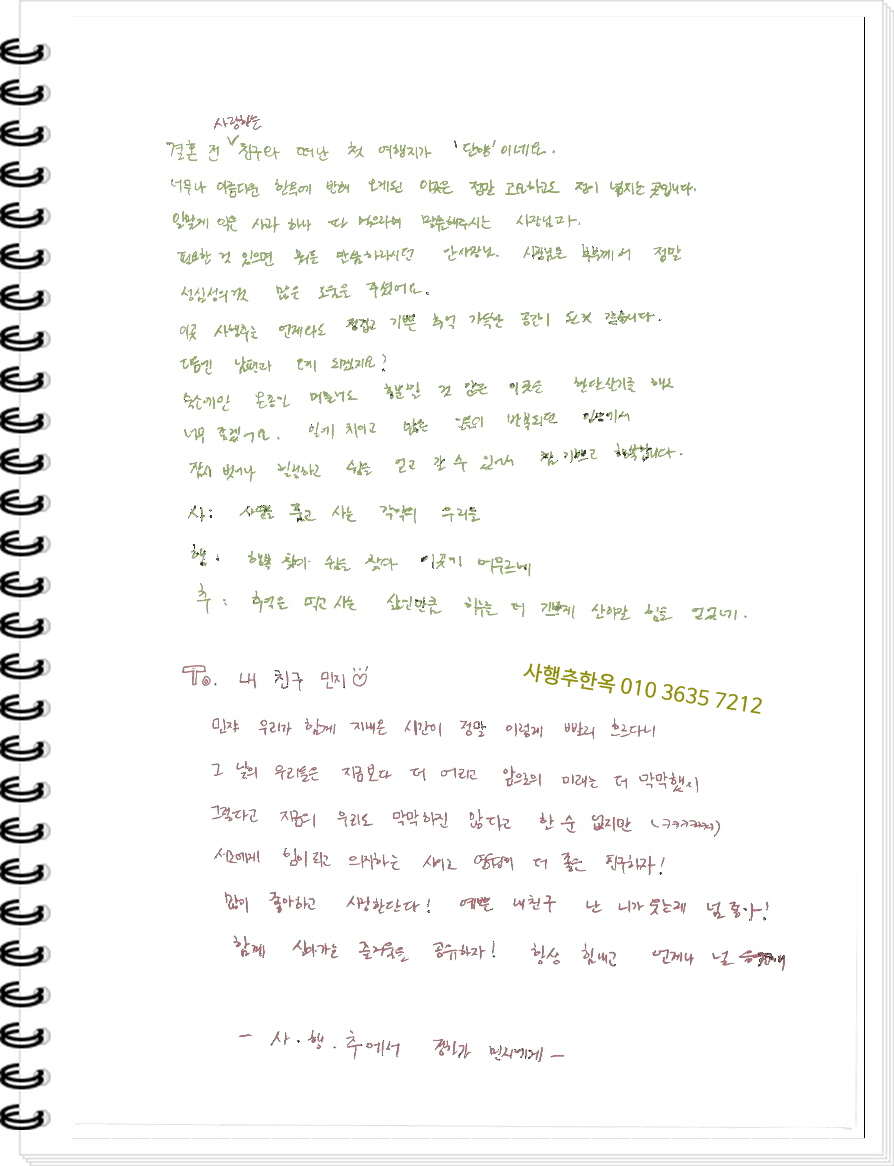 사랑하는
결혼 전 ∨ 친구와 떠난 첫 여행지가 '단양'이네요.
너무나 아름다운 한옥에 반해 오게된 이곳은 정말 고요하고도 정이 넘치는 곳입니다.
알맞게 익은 사과 하나 따 먹으라며 말씀해주시는 사장님과.
필요한 것 있으면 뭐든 말씀하라시던 안사장님. 사장님은 부부께서 정말
성심성의껏 많은 도움을 주셨어요.
이곳 사행추는 언제라도 정겹고 기쁜 추억 가득한 공간이 될것 같습니다.
다음엔 남편과 오게 되겠지요?
머물러도 것 같은 이곳은 한달살기를 해도
너무 좋겠어요. 일에 치이고 많은 반복되던 일상에서
잠시 벗어나 힐링하고 쉼을 얻고 갈 수 있어 참 기쁘고 행복합니다.
사: 사명을 품고 사는 각박한 우리들
행: 행복 찾아 쉼을 찾아 이곳에 머무르네
추: 추억을 먹고 사는 삶인만큼 하루를 더 기쁘게 살아갈 힘을 얻고가네.
To. 내 친구 민지♡
사행추한옥 010 3635 7212
민쟈 우리가 함께 지내온 시간이 정말 이렇게 빨리 흐르다니
그 날의 우리들은 지금보다 더 어리고 앞으로의 미래는 더 막막했지
그렇다고 지금의 우리도 막막하진 않다고 할 순 없지만 (ㅋㅋㅋㅋㅋ)
서로에게 힘이 되고 의지하는 사이로 영원히 더 좋은 친구하자!
많이 좋아하고 사랑한단다! 예쁜 내친구 난 니가 웃는게 넘 좋아!
함께 살아가는 즐거움을 공유하자! 항상 힘내고 언제나 널 응원해
- 사.행.추에서 민지에게 -